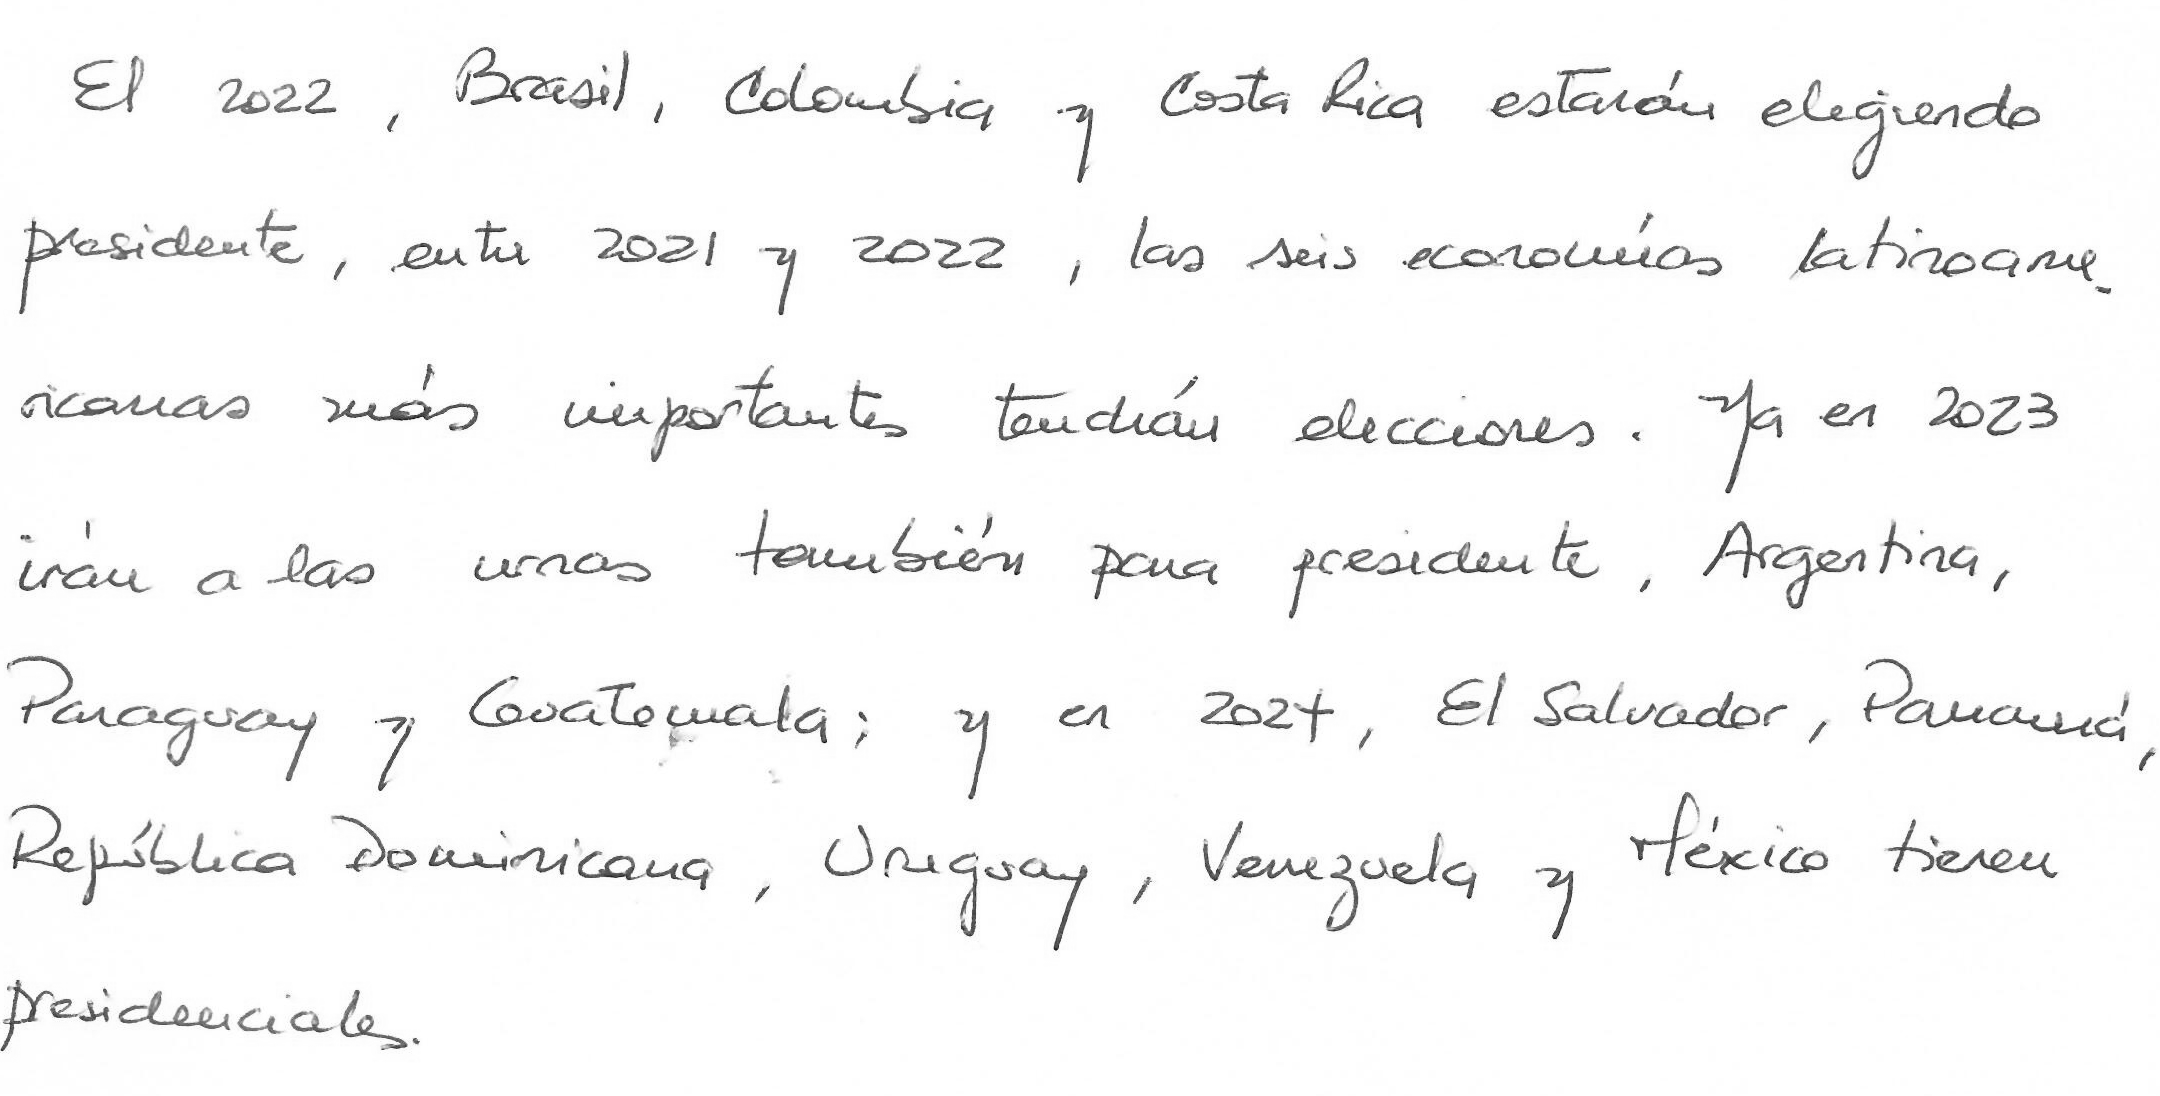 El 2022, Brasil, Colombia y Costa Rica estarán eligiendo
presidente, entre 2021 y 2022, las seis economías latinoame-
ricanas más importantes tendrán elecciones. Ya en 2023
irán a las urnas también para presidente, Argentina,
Paraguay y Guatemala; y en 2024, El Salvador, Panamá,
República Dominicana, Uruguay, Venezuela y México tienen
presidenciales.